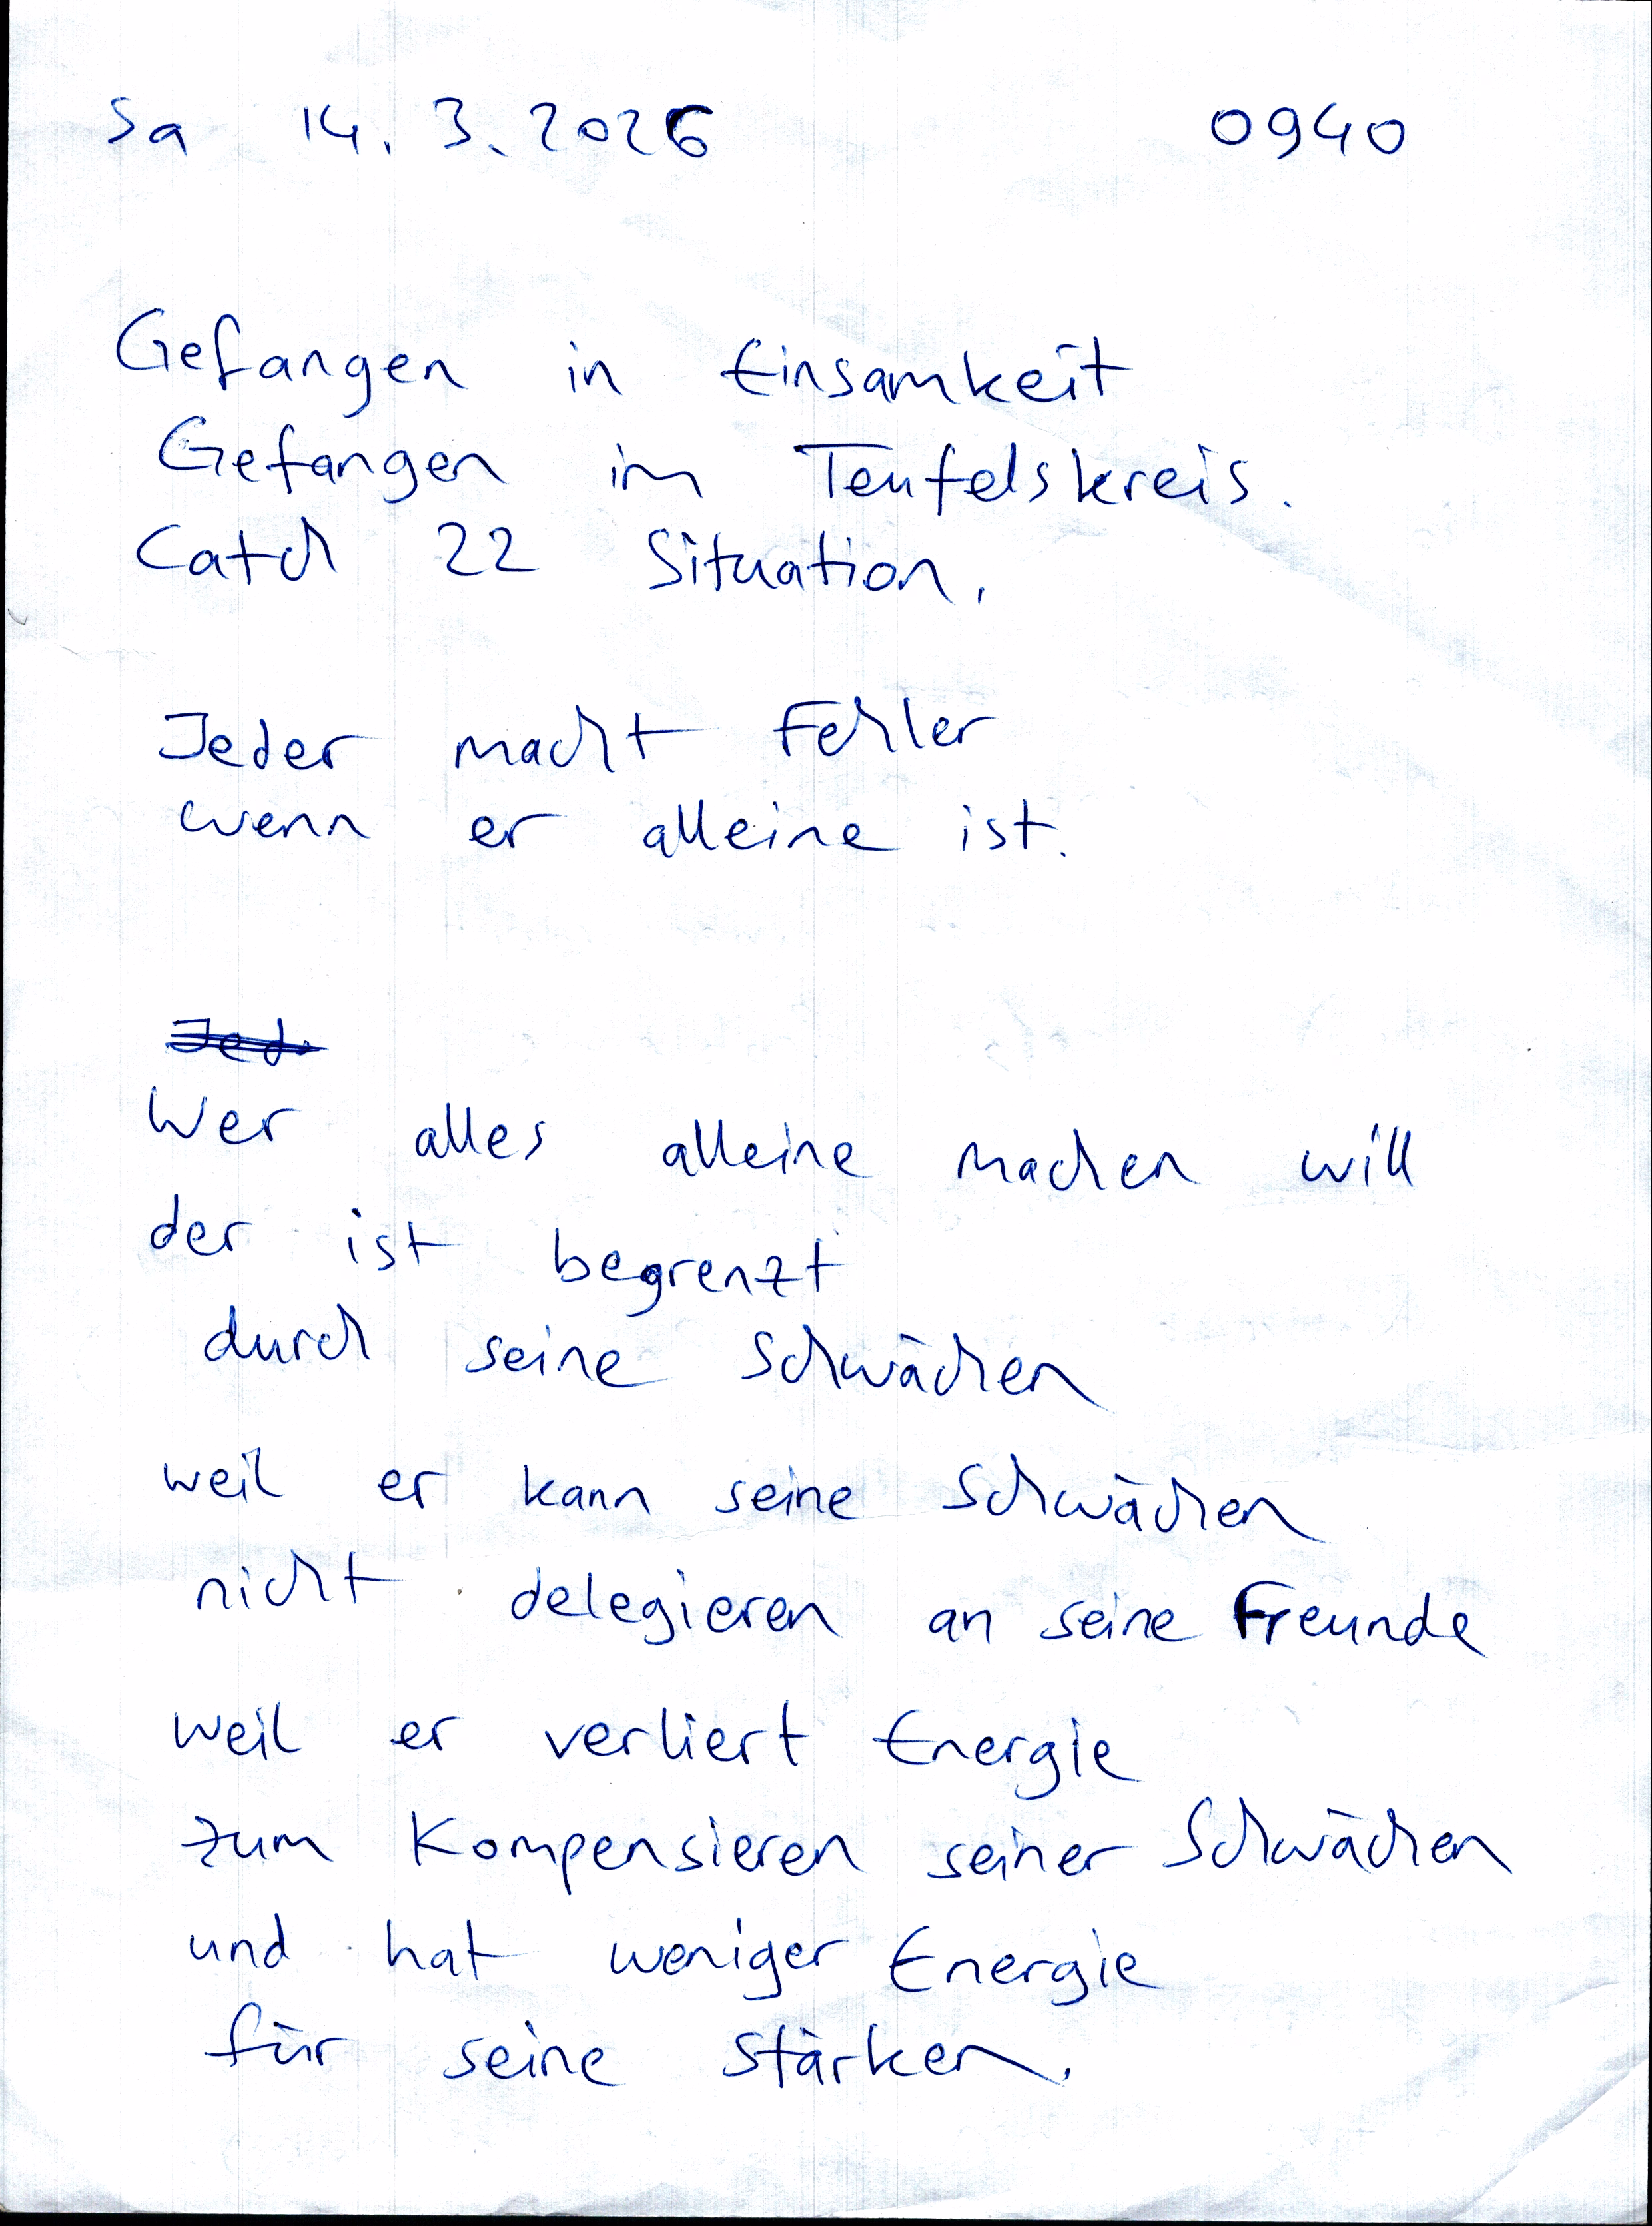 Sa 14. 3. 2026 0940
Gefangen in Einsamkeit
Gefangen im Teufelskreis.
Catch 22 Situation.
Jeder macht Fehler
wenn er alleine ist.
Jed
Wer alles alleine machen will
der ist begrenzt
durch seine Schwächen
weil er kann seine Schwächen
nicht delegieren an seine Freunde
weil er verliert Energie
zum Kompensieren seiner Schwächen
und hat weniger Energie
für seine Stärken.